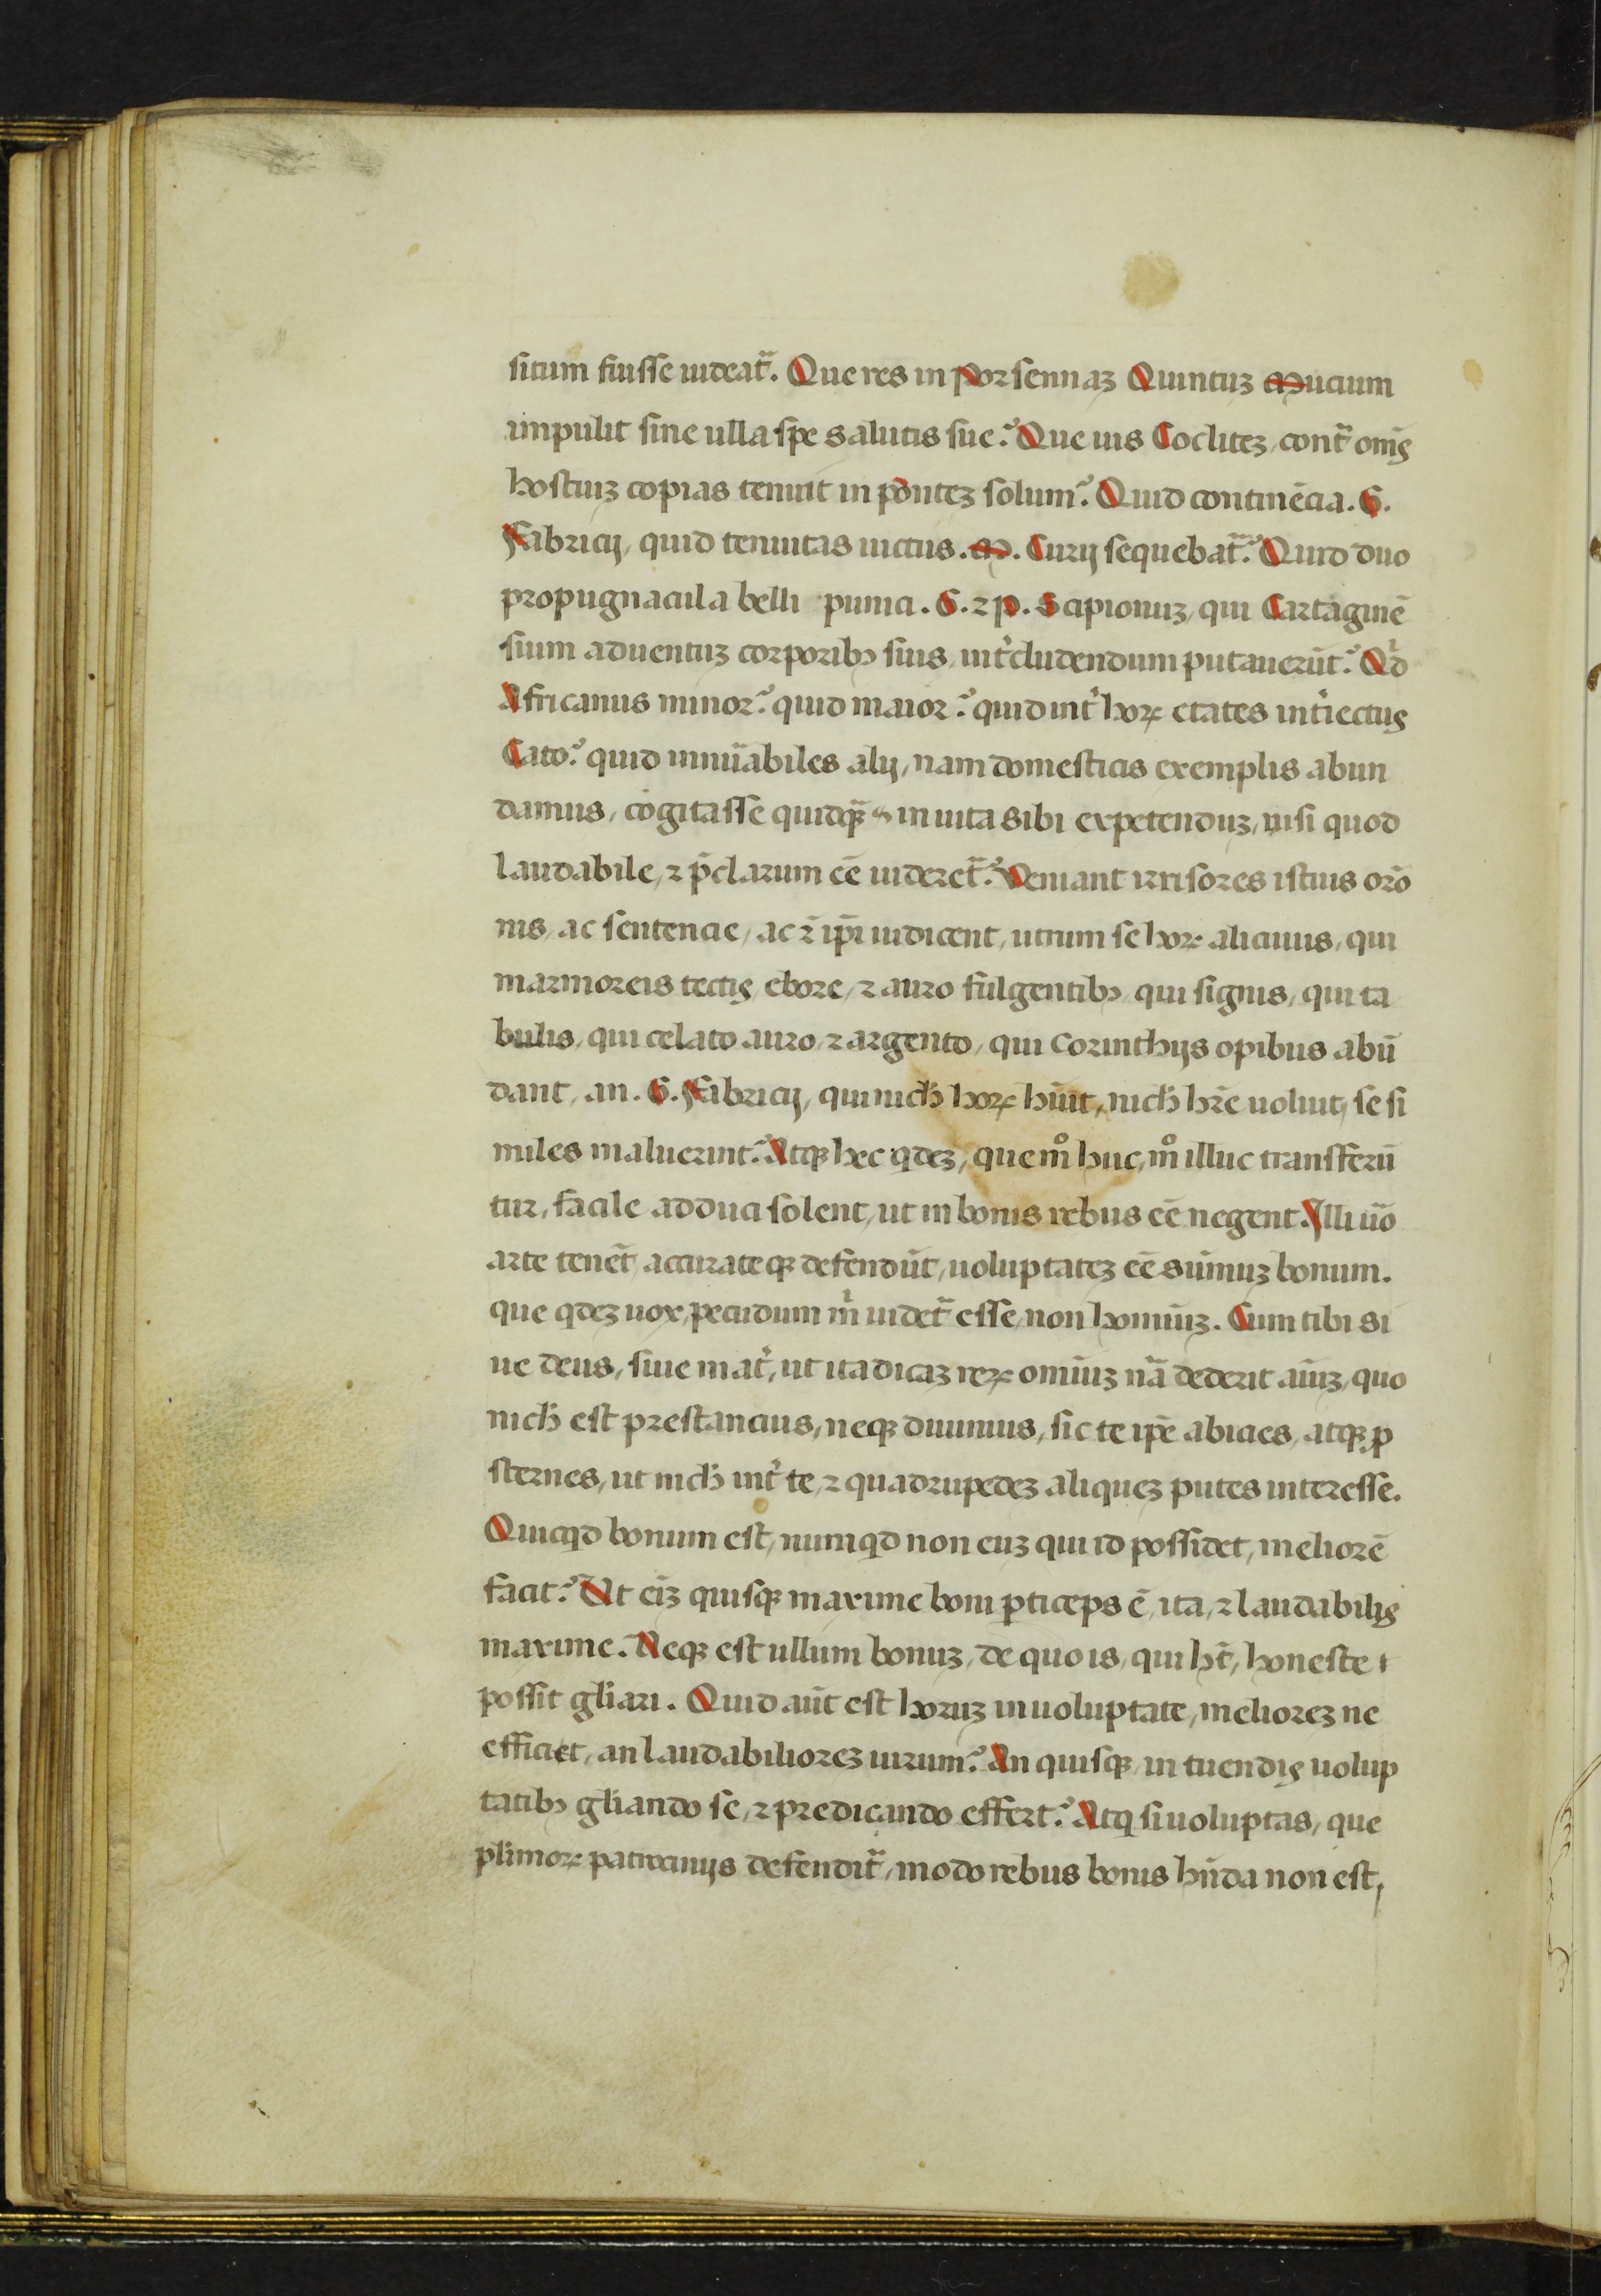 situm fuisse uideat᷑. Que res in Porsennaꝫ Quintuꝫ Mucium
impulit sine ulla spe salutis sue? Que uis Cocliteꝫ, cont᷑ om̄s
hostiuꝫ copias tenuit in ponteꝫ solum? Quid continēcia. G.
Fabricij, quid tenuitas uictus. M. Curij sequebat᷑? Quid duo
propugnacula belli punici. G. ⁊ P. Scipionuꝫ, qui Cartaginē
sium aduentuꝫ corporibꝰ suis, int͛cludendum putauerūt? Qͥd
Africanus minor? quid maior? quid int͛ hoꝝ etates int͛iectus
Cato? quid innūabiles alij, nam domesticis exemplis abun
damus, cogitasse quidqꝫ in uita sibi expetenduꝫ, nisi quod
laudabile, ⁊ p̄clarum eē uideret᷑? Veniant irrisores istius orō
nis, ac sentencie, ac ⁊̄ ip̄i iudicent, utrum se hoꝝ alicuius, qui
marmoreis tectis, ebore, ⁊ auro fulgentibꝰ, qui signis, qui ta
bulis, qui celato auro, ⁊ argento, qui Corinthijs opibus abū
dant, an. G. Fabricij, qui nich̄ hoꝝ hūit, nich̄ hr̄e uoluit, se si
miles maluerint? Atqꝫ hec qdeꝫ, que mͦ huc, mͦ illuc transferū
tur, facile adduci solent, ut in bonis rebus eē negent. Illi ūo
arte tenēt, accurateqꝫ defendūt, uoluptateꝫ eē sūmuꝫ bonum.
que qdeꝫ uox, pecudum m̍ uidet᷑ esse, non hominuꝫ. Cum tibi si
ue deus, siue mat͛, ut ita dicaꝫ reꝝ omniuꝫ nā dederit aīuꝫ, quo
nich̄ est prestancius, neqꝫ diuinius, sic te ip̄e abicies, atqꝫ ꝓ
sternes, ut nich̄ int͛ te, ⁊ quadrupedeꝫ aliqueꝫ putes interesse.
Quicqd bonum est, numqd non euꝫ qui id possidet, meliorē
facit? Ut eīꝫ quisqꝫ maxime boni ꝑticeps ē, ita, ⁊ laudabilis
maxime. Neqꝫ est ullum bonuꝫ, de quo is, qui ht̄, honeste
possit gl̄iari. Quid aūt est horuꝫ in uoluptate, melioreꝫ ne
efficiet, an laudabilioreꝫ uirum? An quisqꝫ, in tuendis uolup
tatibꝰ gl̄iando se, ⁊ predicando effert? Atq si uoluptas, que
pl̄imoꝝ patrocinijs defendit᷑, modo rebus bonis hn̄da non est,